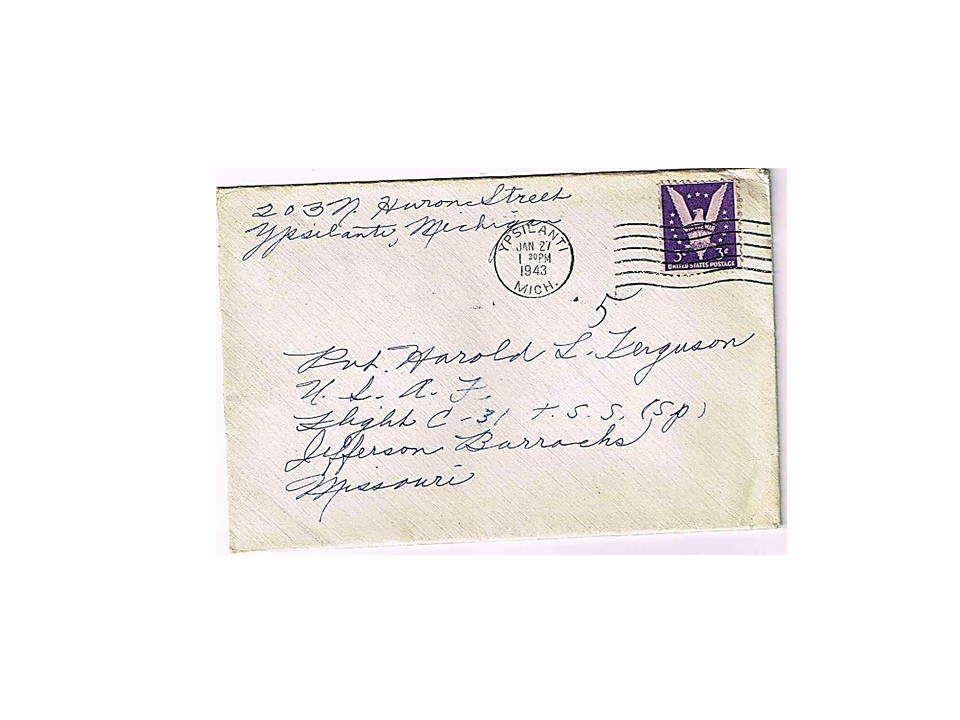 203 N. Huron Street
Ypsilanti, Michigan
YPSILANTI
JAN 27
1 30 PM
1943
MICH.
WIN THE WAR
3¢ 3¢
UNITED STATES POSTAGE
5
Pvt. Harold L. Ferguson
U. S. A. F.
Flight C-31 T.S.S. (Sp)
Jefferson Barracks
Missouri